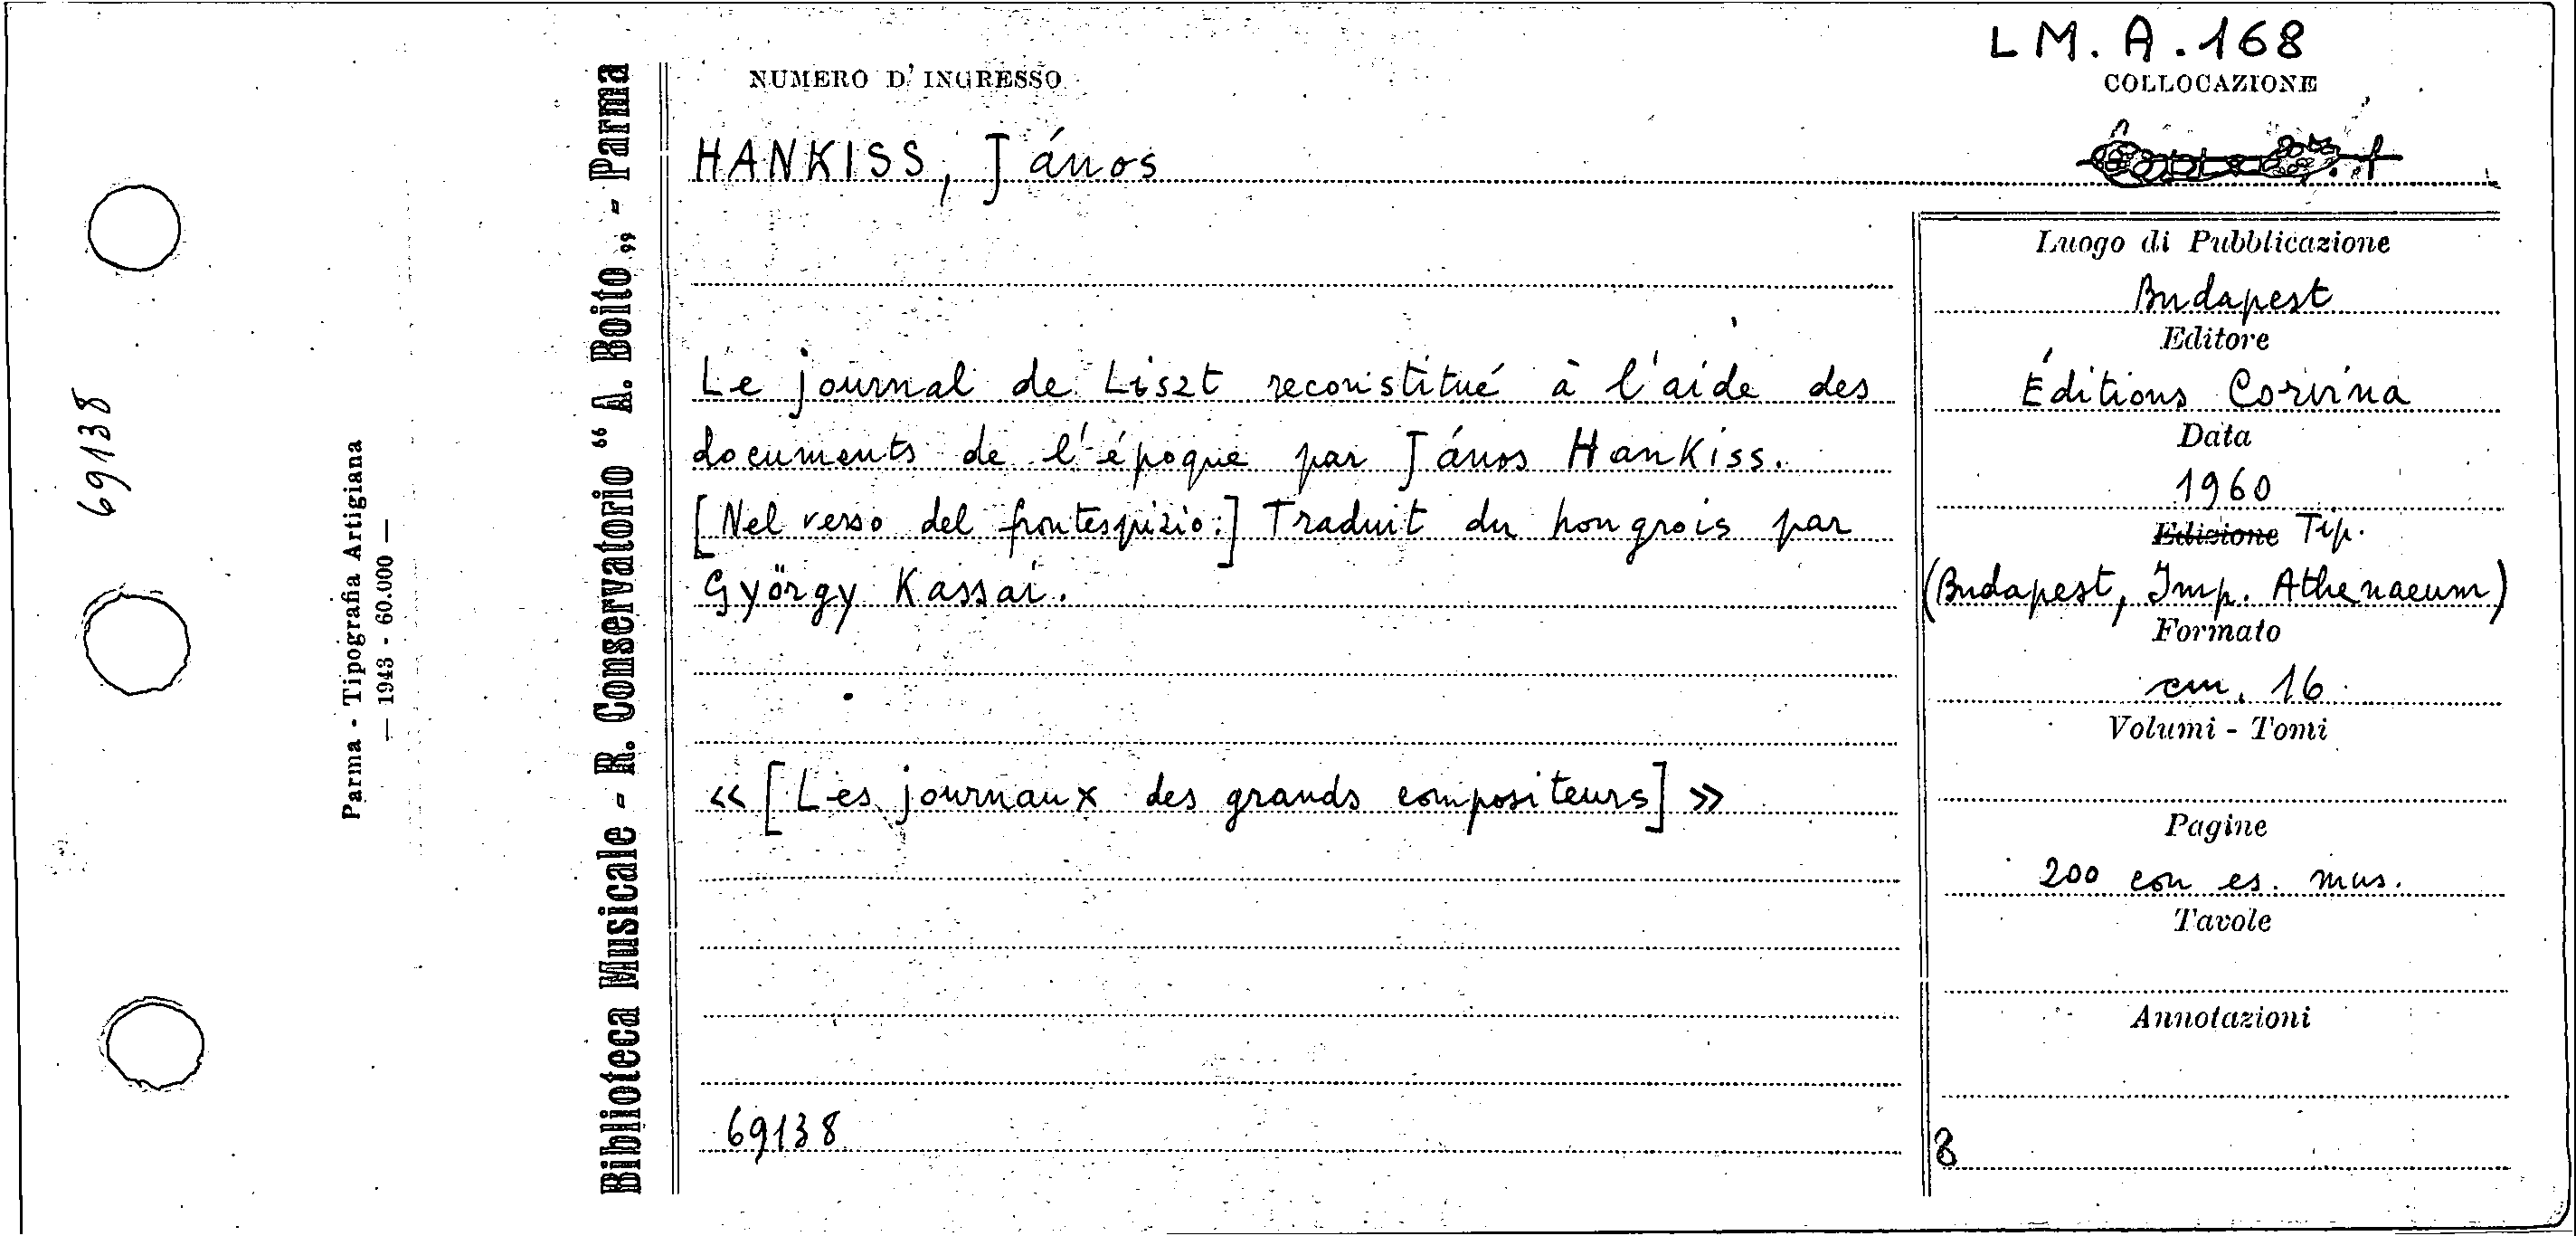 LM. A. 168
NUMERO D' INGRESSO
COLLOCAZIONE
HANKISS, János
Le journal de Liszt reconstitué à l'aide des
documents de l'époque par János Hankiss.
[Nel verso del frontespizio:] Traduit du hongrois par
György Kassai.
« [Les journaux des grands compositeurs] »
69138
Luogo di Pubblicazione
Budapest
Editore
Éditions Corvina
Data
1960
Edizione Tip.
(Budapest, Imp. Athenaeum)
Formato
cm. 16
Volumi - Tomi
Pagine
200 con es. mus.
Tavole
Annotazioni
8
Biblioteca Musicale - R. Conservatorio “A. Boito„ - Parma
Parma - Tipografia Artigiana
— 1943 - 60.000 —
69138